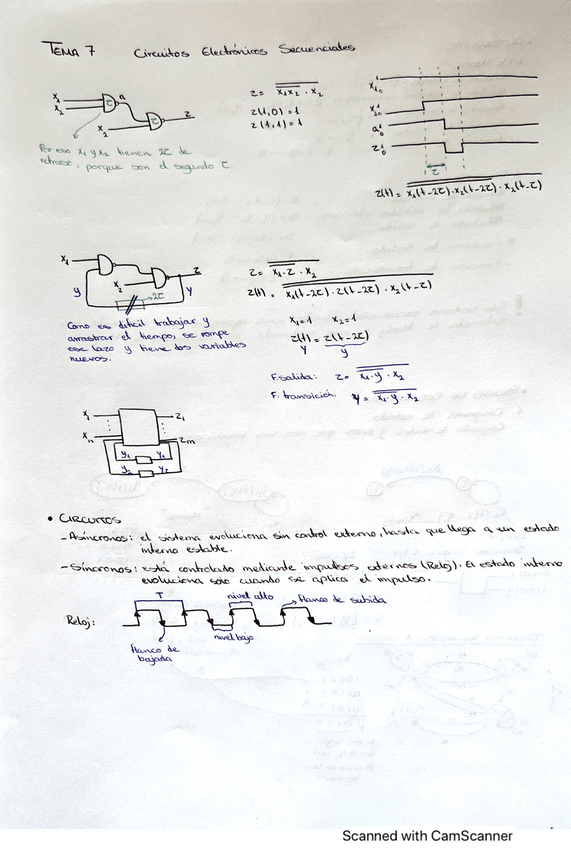 TEMA 7 Circuitos Electrónicos Secuenciales
x₁
x₂
a
τ
x₂
τ
z
Por eso x₁ y x₂ tienen 2τ de
retraso, porque son el segundo τ.
z = \overline{\overline{x₁x₂} · x₂}
z(1,0) = 1
z(1,1) = 1
x₁ 1 0
x₂ 1 0
a 1 0
z 1 0
τ
z(t) = \overline{\overline{x₁(t-2τ)·x₂(t-2τ)}·x₂(t-τ)}
x₁
x₂
z
y
2τ
Y
Como es difícil trabajar y
arrastrar el tiempo, se rompe
ese lazo y tiene dos variables
nuevos.
z = \overline{\overline{x₁·z}·x₂}
z(t) = \overline{\overline{x₁(t-2τ)·z(t-2τ)}·x₂(t-τ)}
x₁=1 x₂=1
z(t) = z(t-2τ)
Y y
F. salida: z = \overline{\overline{x₁·y}·x₂}
F. transición: Y = \overline{\overline{x₁·y}·x₂}
x₁ z₁
xₙ zm
y₁ Y₁
y₂ Y₂
• CIRCUITOS
- Asíncronos: el sistema evoluciona sin control externo, hasta que llega a un estado
interno estable.
- Síncronos: está controlado mediante impulsos externos (Reloj). El estado interno
evoluciona solo cuando se aplica el impulso.
T nivel alto flanco de subida
Reloj:
nivel bajo
flanco de
bajada
Scanned with CamScanner